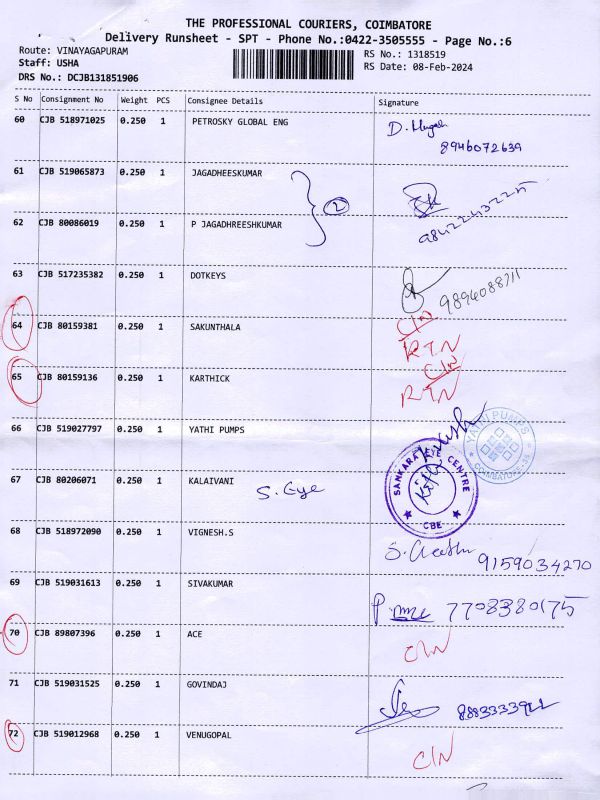 THE PROFESSIONAL COURIERS, COIMBATORE
Delivery Runsheet - SPT - Phone No.:0422-3505555 - Page No.:6
Route: VINAYAGAPURAM
RS No.: 1318519
Staff: USHA
RS Date: 08-Feb-2024
DRS No.: DCJB131851906
S No Consignment No Weight PCS Consignee Details Signature
60 CJB 518971025 0.250 1 PETROSKY GLOBAL ENG
8946072639
61 CJB 519065873 0.250 1 JAGADHEESKUMAR
2
62 CJB 80086019 0.250 1 P JAGADHREESHKUMAR
63 CJB 517235382 0.250 1 DOTKEYS
64 CJB 80159381 0.250 1 SAKUNTHALA C/N
RTN
65 CJB 80159136 0.250 1 KARTHICK C/N
RTN
66 CJB 519027797 0.250 1 YATHI PUMPS
YATHI PUMPS
67 CJB 80206071 0.250 1 KALAIVANI S. Eye
SANKARA EYE CENTRE
CBE
68 CJB 518972090 0.250 1 VIGNESH.S
9159034270
69 CJB 519031613 0.250 1 SIVAKUMAR
7708380175
70 CJB 89807396 0.250 1 ACE C/N
71 CJB 519031525 0.250 1 GOVINDAJ
72 CJB 519012968 0.250 1 VENUGOPAL C/N